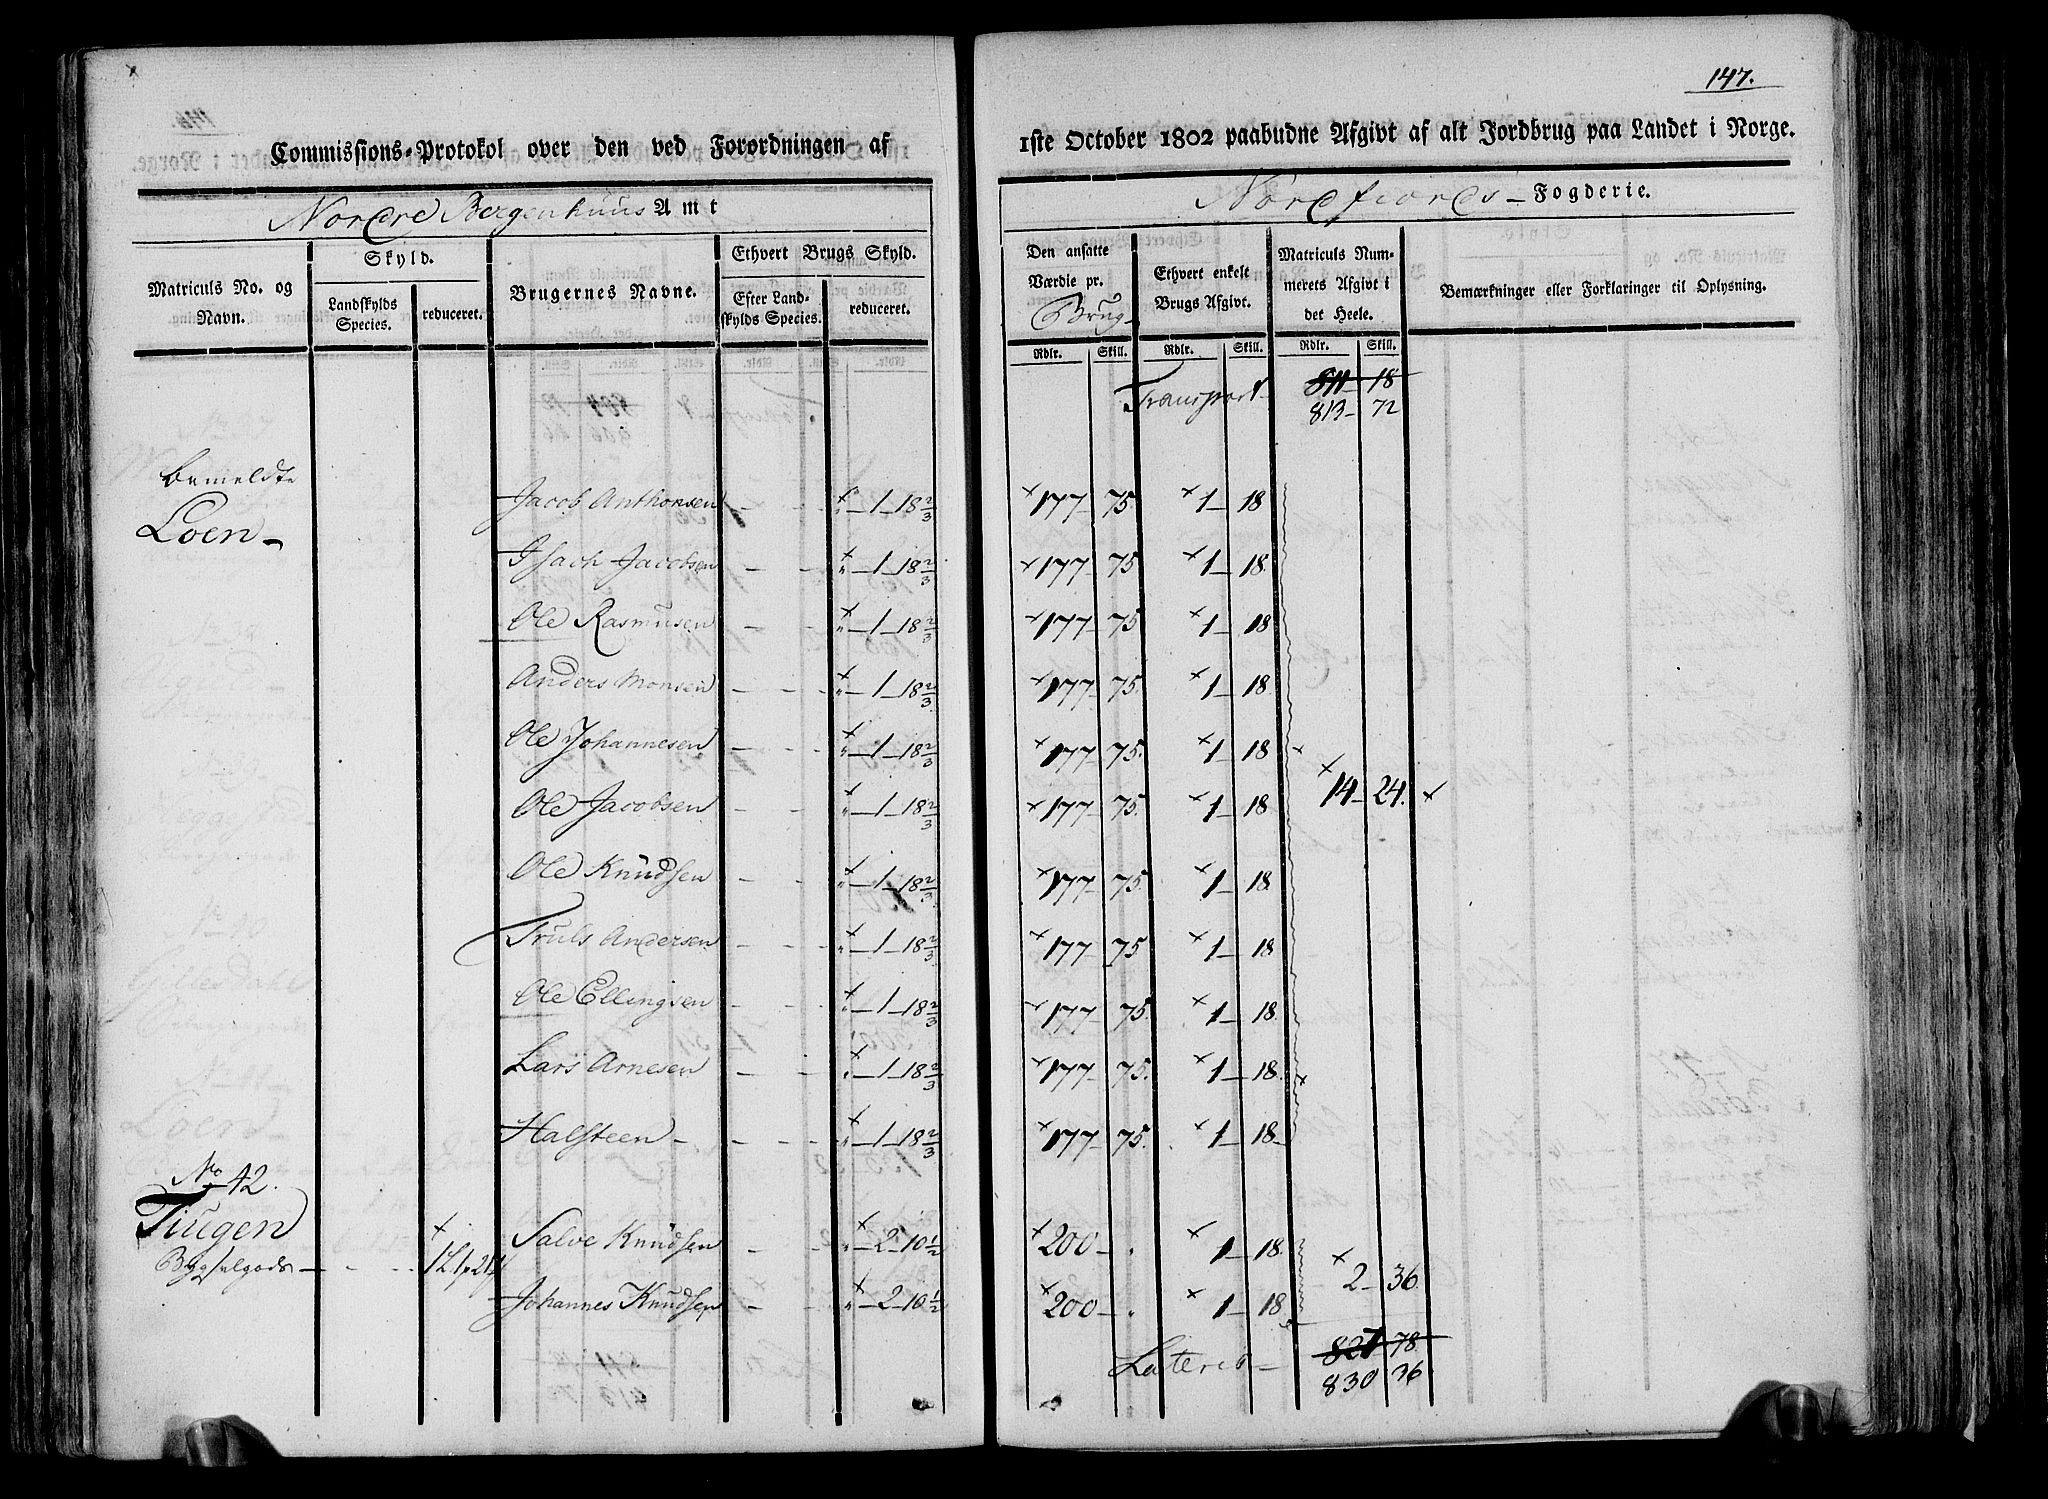 147.
Commissions-Protokol over den ved Forordningen af 1ste October 1802 paabudne Afgivt af alt Jordbrug paa Landet i Norge.
Nordre Bergenhuus Amt
Nordfiords - Fogderie.
Matriculs No. og Navn.
Skyld.
Landskylds Species.
reduceret.
Brugernes Navne.
Ethvert Brugs Skyld.
Efter Landskylds Species.
reduceret.
Den ansatte Værdie pr. Brug
Ethvert enkelt Brugs Afgivt.
Matriculs Nummerets Afgivt i det Heele.
Bemærkninger eller Forklaringer til Oplysning.
Rdlr. Skill. Rdlr. Skill. Rdlr. Skill.
Transport 811 - 18
813 - 72
bemeldte
Loen -
Jacob Anthonsen - - " - 1 - 18 2/3 177 - 75. 1 - 18
Isach Jacobsen - - " - 1 - 18 2/3 177 - 75 1 - 18
Ole Rasmusen - - " - 1 - 18 2/3 177 - 75 1 - 18
Anders Monsen - - " - 1 - 18 2/3 177 - 75. 1 - 18
Ole Johannesen - - " - 1 - 18 2/3 177 - 75. 1 - 18
Ole Jacobsen - - " - 1 - 18 2/3 177 - 75. 1 - 18 14 - 24.
Ole Knudsen - - " - 1 - 18 2/3 177 - 75. 1 - 18
Truls Andersen - - " - 1 - 18 2/3 177 - 75. 1 - 18
Ole Ellingsen - - " - 1 - 18 2/3 177 - 75. 1 - 18.
Lars Arnesen - - " - 1 - 18 2/3 177 - 75. 1 - 18.
Halsteen - - - " - 1 - 18 2/3 177 - 75. 1 - 18 -
No 42.
Tiugen
Bygselgods - - -
Salve Knudsen - - " - 2 - 10 1/2 200 - " 1 - 18.
2 - 36.
Johannes Knudsen - - " - 2 - 10 1/2 200 - " 1 - 18
Lateris - 827 - 78
830 36